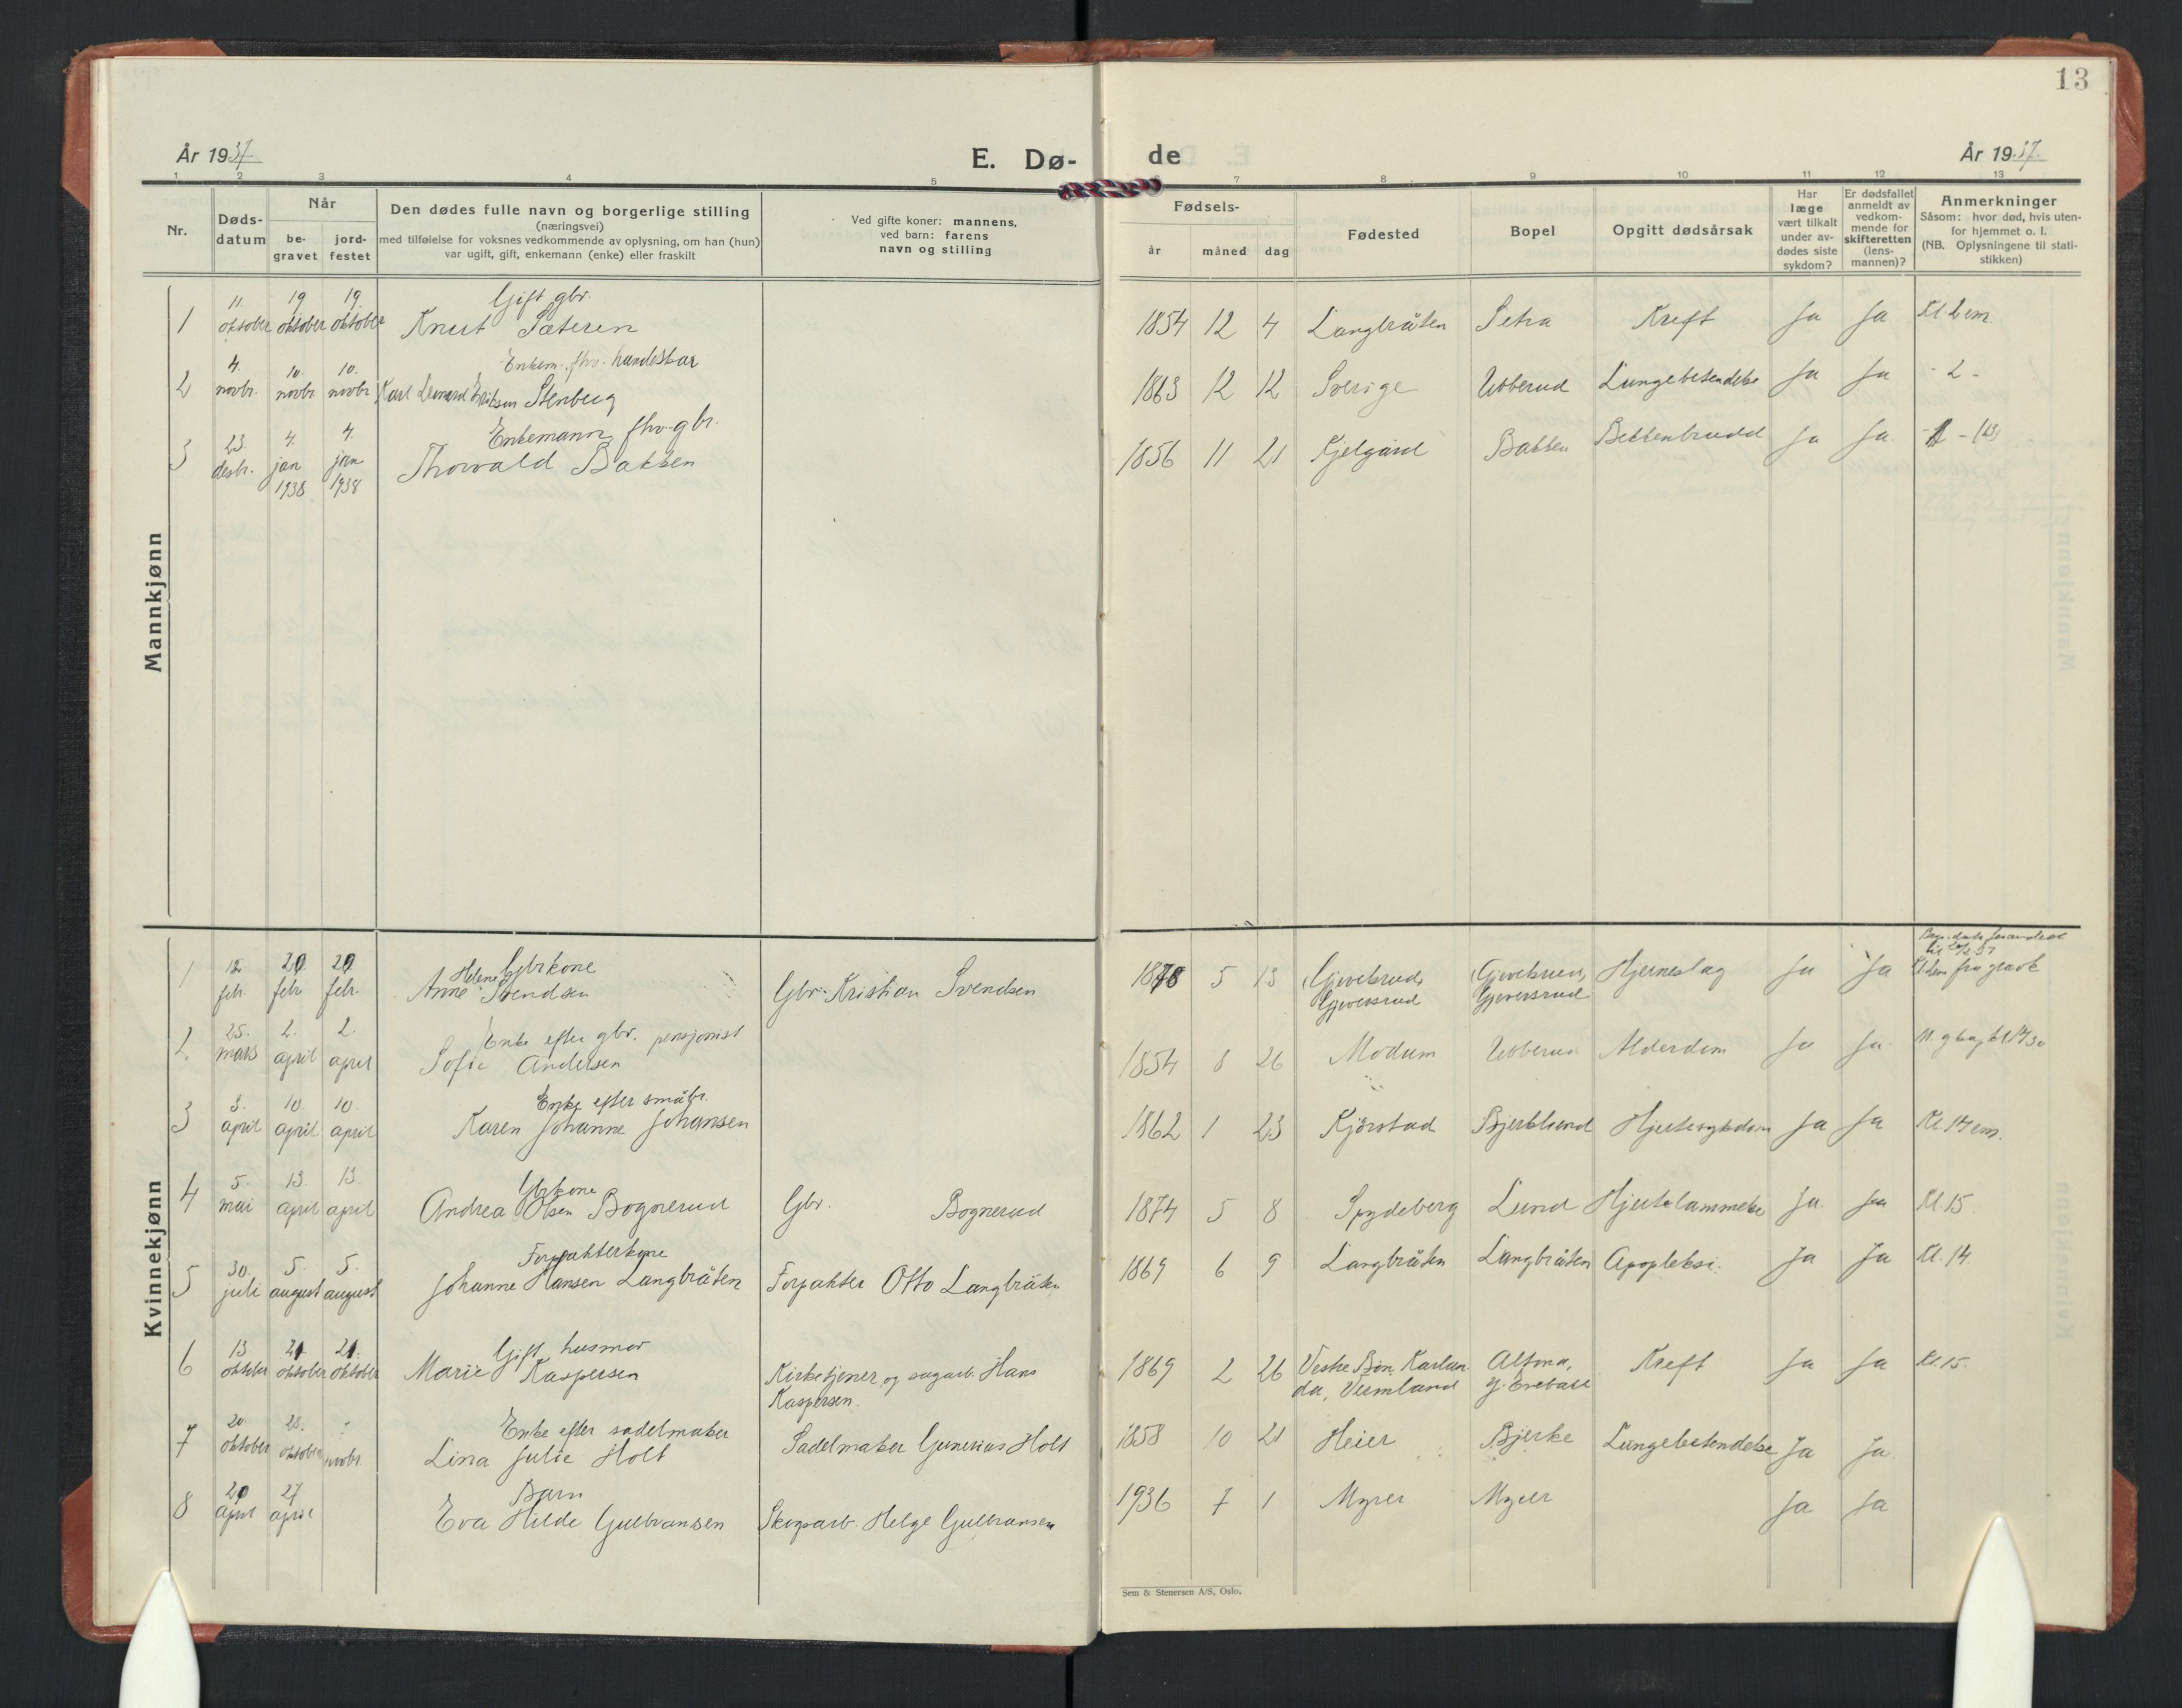 13
År 1937
E. Dø-
de
År 1937.
1 2 3 4 5 6 7 8 9 10 11 12 13
Nr.
Døds-
datum
Når
be-
gravet
jord-
festet
Den dødes fulle navn og borgerlige stilling
(næringsvei)
med tilføielse for voksnes vedkommende av oplysning, om han (hun)
var ugift, gift, enkemann (enke) eller fraskilt
Ved gifte koner: mannens,
ved barn: farens
navn og stilling
Fødsels-
år
måned
dag
Fødested
Bopel
Opgitt dødsårsak
Har
læge
vært tilkalt
under av-
dødes siste
sykdom?
Er dødsfallet
anmeldt av
vedkom-
mende for
skifteretten
(lens-
mannen)?
Anmerkninger
Såsom: hvor død, hvis uten-
for hjemmet o. l.
(NB. Oplysningene til stati-
stikken)
Mannkjønn
11. 19 19. Gift gbr.
1 oktober oktober oktober Knut Sæteren 1854 12 4 Langbråten Setra Kreft Ja Ja Kl. 2 em.
4. 10. 10. Enkem. fhv.
2 novbr. novbr. novbr. Karl Leonard Eriksen Stenberg 1863 12 12 Sverige Ubberud Lungebetendelse Ja Ja - 2 -
23. 4. 4. Enkemann, fhv. gbr.
3 desbr. jan jan Thorvald Bakken 1856 11 21 Kjelgård Bakken Bekkenbrudd Ja Ja - 1 - (13)
1938 1938
Kvinnekjønn
1 12 20 20 Helene Gbrkone
febr. febr. febr. Anne Svendsen Gbr. Kristian Svendsen 1878 5 13 (Gjevebrud) (Gjevebrud) Hjerneslag Ja Ja
Gjeversrud Gjeversrud
25. 2. 2. Enke efter gbr. pensjonist
2. mars april april Sofie Andersen 1854 8 26 Modum Ubberud Alderdom Ja Ja
3. 10. 10. Enke efter småbr.
3 april april april Karen Johanne Johansen 1862 1 23 Kjörstad Bjerklund Hjertesykdom Ja Ja Kl. 14 em.
5. 13. 13. Gbrkone
4 mai april april Andrea Olsen Bognerud Gbr. Bognerud 1874 5 8 Spydeberg Lund Hjertelammelse Ja Ja Kl. 15.
30. 5. 5. Forpakterkone
5 juli august august Johanne Hansen Langbråten Forpakter Otto Langbråten 1869 6 9 Langbråten Langbråten Apopleksi. Ja Ja Kl. 14
13 21 21. Gift, husmor
6 oktober oktober oktober Marie Kaspersen Kirketjener og sagarb. Hans 1869 2 26 Vestre Bön, Karlan Altona, Kreft Ja Ja Kl. 15.
Kaspersen. da, Vermland
20. 28. Enke efter sadelmaker
7 oktober oktober novbr. Lina Julie Holt Sadelmaker Gunerius Holt 1858 10 21 Heier Bjerke Lungebetendelse Ja Ja
20 27 Barn
8 april april Eva Hilde Gulbransen Skogsarb. Helge Gulbransen 1936 7 1 Myrer Myrer Ja Ja
Sem & Stenersen A/S, Oslo.